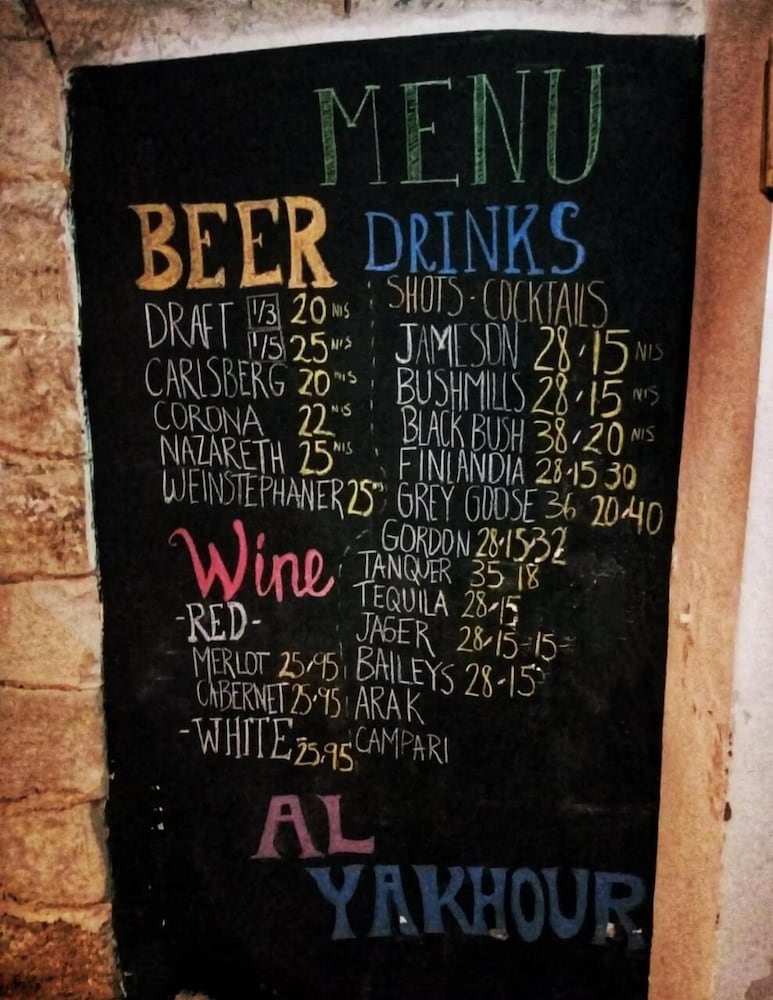 MENU
BEER
DRAFT 1/3 20 NIS
1/5 25 NIS
CARLSBERG 20 NIS
CORONA 22 NIS
NAZARETH 25 NIS
WEINSTEPHANER 25 NIS
Wine
-RED-
MERLOT 25,95
CABERNET 25,95
-WHITE- 25,95
DRINKS
SHOTS - COCKTAILS
JAMESON 28,15 NIS
BUSHMILLS 28,15 NIS
BLACK BUSH 38,20 NIS
FINLANDIA 28-15 30
GREY GOOSE 36 20-40
GORDON 28-15-32
TANQUER 35 18
TEQUILA 28-15
JAGER 28-15-15-
BAILEYS 28-15
ARAK
CAMPARI
AL
YAKHOUR